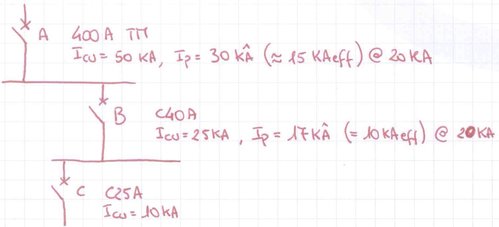 A 400A TM
Icu = 50 KA, Ip = 30 kÂ (≈ 15 KAeff) @ 20KA
B C40A
Icu = 25KA, Ip = 17KÂ (= 10KAeff) @ 20KA
C C25A
Icu = 10KA